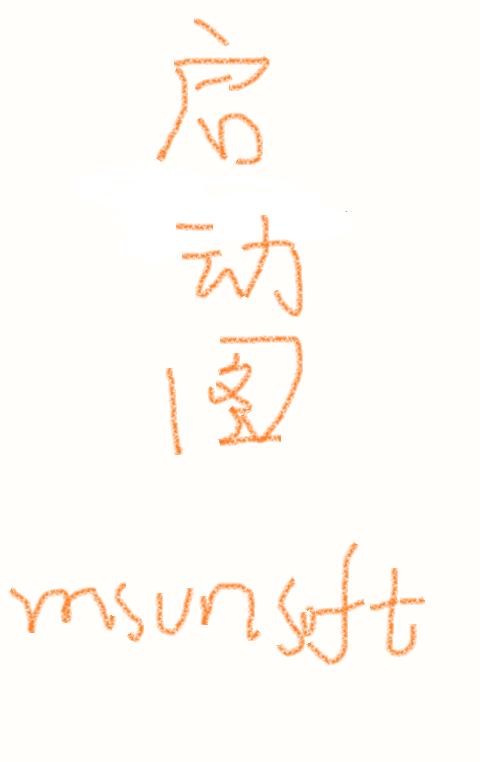 启
动
图
msunsoft